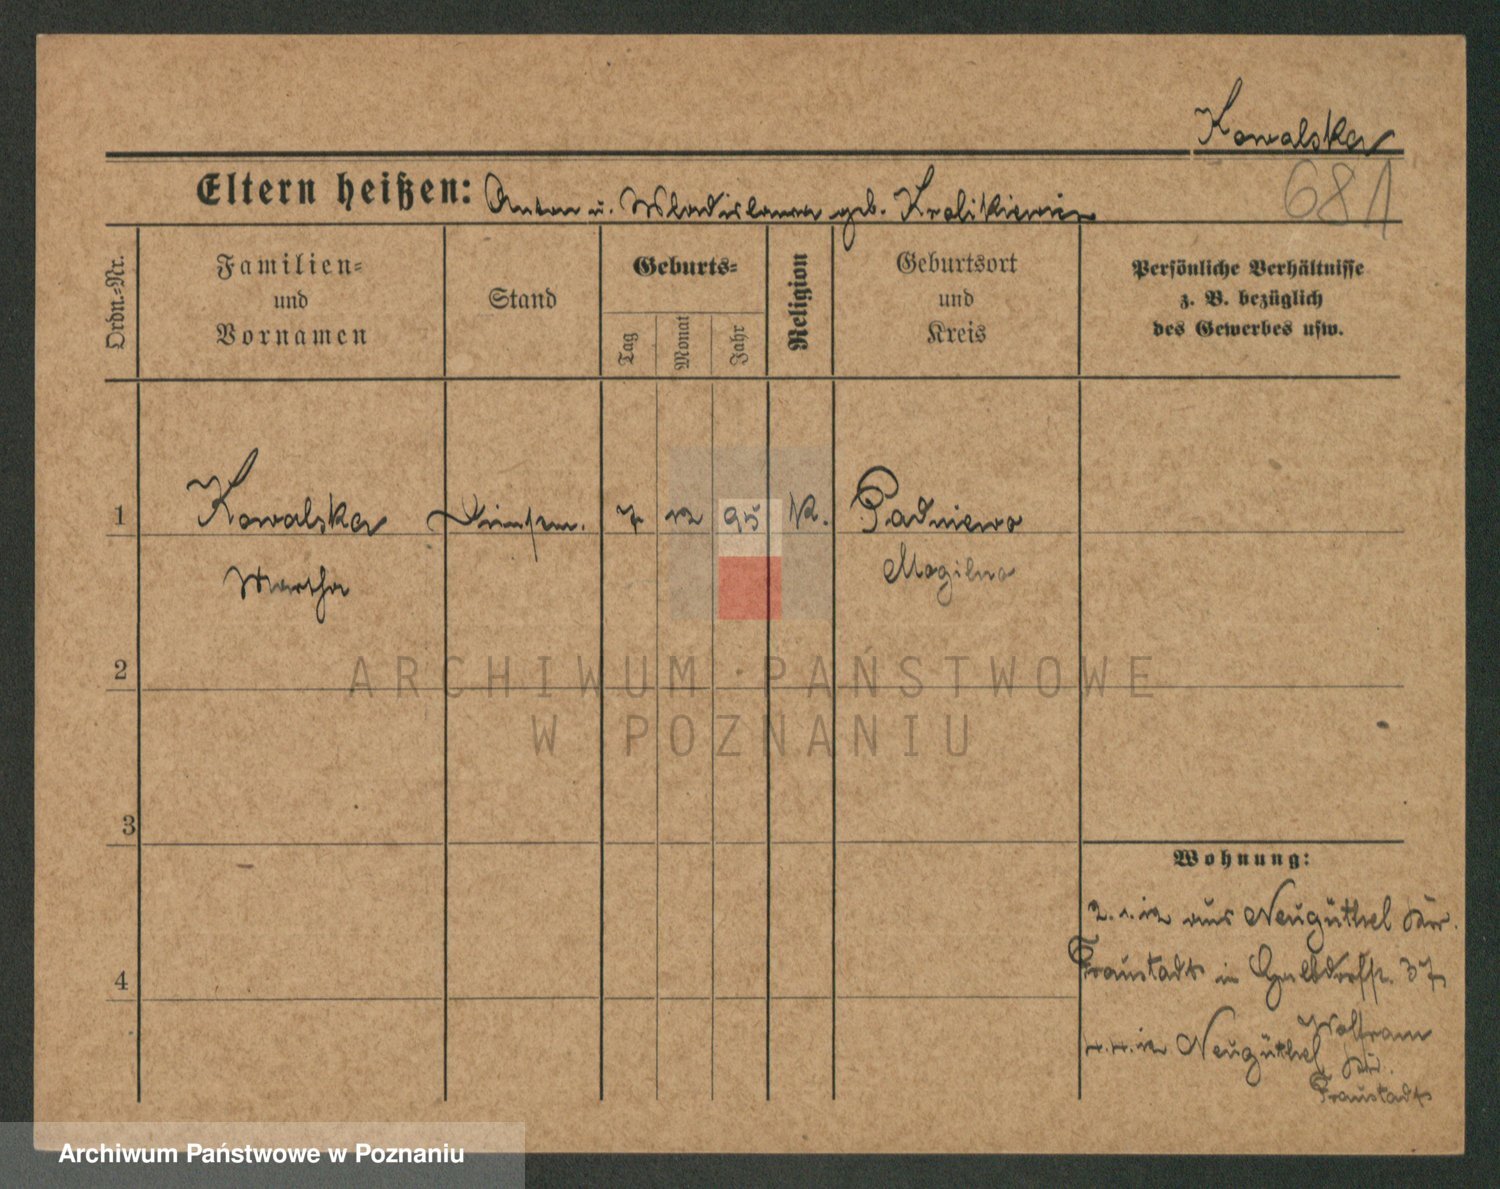 Kowalska
681
Eltern heißen: Anton u. Wladislawa geb. Krolikiewicz
Ordn.-Nr.
Familien-
und
Vornamen
Stand
Geburts-
Tag
Monat
Jahr
Religion
Geburtsort
und
Kreis
Persönliche Verhältnisse
z. B. bezüglich
des Gewerbes usw.
1 Kowalska 7 12 95 K. Padniewo
Martha Mogilno
2
3
4
Wohnung:
2.1.12 aus Neugüthel Kr.
Fraustadt in 37
Wolfram
4.4.12 Neugüthel
Kr.
Fraustadt
ARCHIWUM PAŃSTWOWE
W POZNANIU
Archiwum Państwowe w Poznaniu